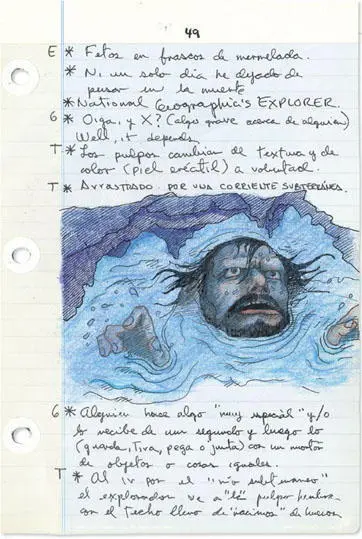 49
E * Fetos en frascos de mermelada.
* Ni un solo día he dejado de
pensar en la muerte
* National Geographic's EXPLORER.
G * Oiga, y X? (algo grave acerca de alguien)
Well, it depends
T * Los pulpos cambian de textura y de
color (piel eréctil) a voluntad.
T * ARRASTRADO POR UNA CORRIENTE SUBTERRÁNEA.
G * Alguien hace algo "muy especial" y/o
lo recibe de un segundo y luego lo
(guarda, tira, pega o junta) con un montón
de objetos o cosas iguales.
T * Al ir por el "río subterráneo"
el explorador ve a "la" pulpo hembra
con el techo lleno de "racimos" de huevos.